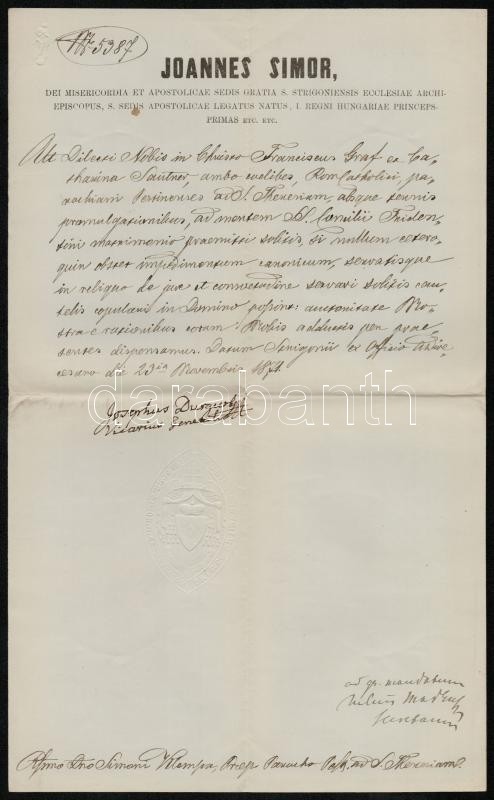 Nr 5387
JOANNES SIMOR,
DEI MISERICORDIA ET APOSTOLICAE SEDIS GRATIA S. STRIGONIENSIS ECCLESIAE ARCHI-
EPISCOPUS, S. SEDIS APOSTOLICAE LEGATUS NATUS, I. REGNI HUNGARIAE PRINCEPS-
PRIMAS ETC. ETC.
Ut Dilecti Nobis in Christo Franciscus Graf et Ca-
tharina Sautner, ambo coelibes, Rom. Catholici, pa-
rochiam Pestinenses ad S. Theresiam, absque ternis
promulgationibus, ad mentem S. Concilii Triden-
tini matrimonio praemitti solitis, si nullum cetero-
quin obstet impedimentum canonicum, servatisque
in reliquo de jure et consvetudine servari solitis cau-
telis copulari in Domino possint: auctoritate No-
stra e rationibus coram Nobis adductis per prae-
sentes dispensamus. Datum Strigonii ex Officio
cesano die 23ia Novembris
darabanth
Josephus
Vicarius Generalis
ad gr. mandatum
Julius
Rssmo Dno Simoni Klempa, Praep. Parocho Pest. ad S. Theresiam.